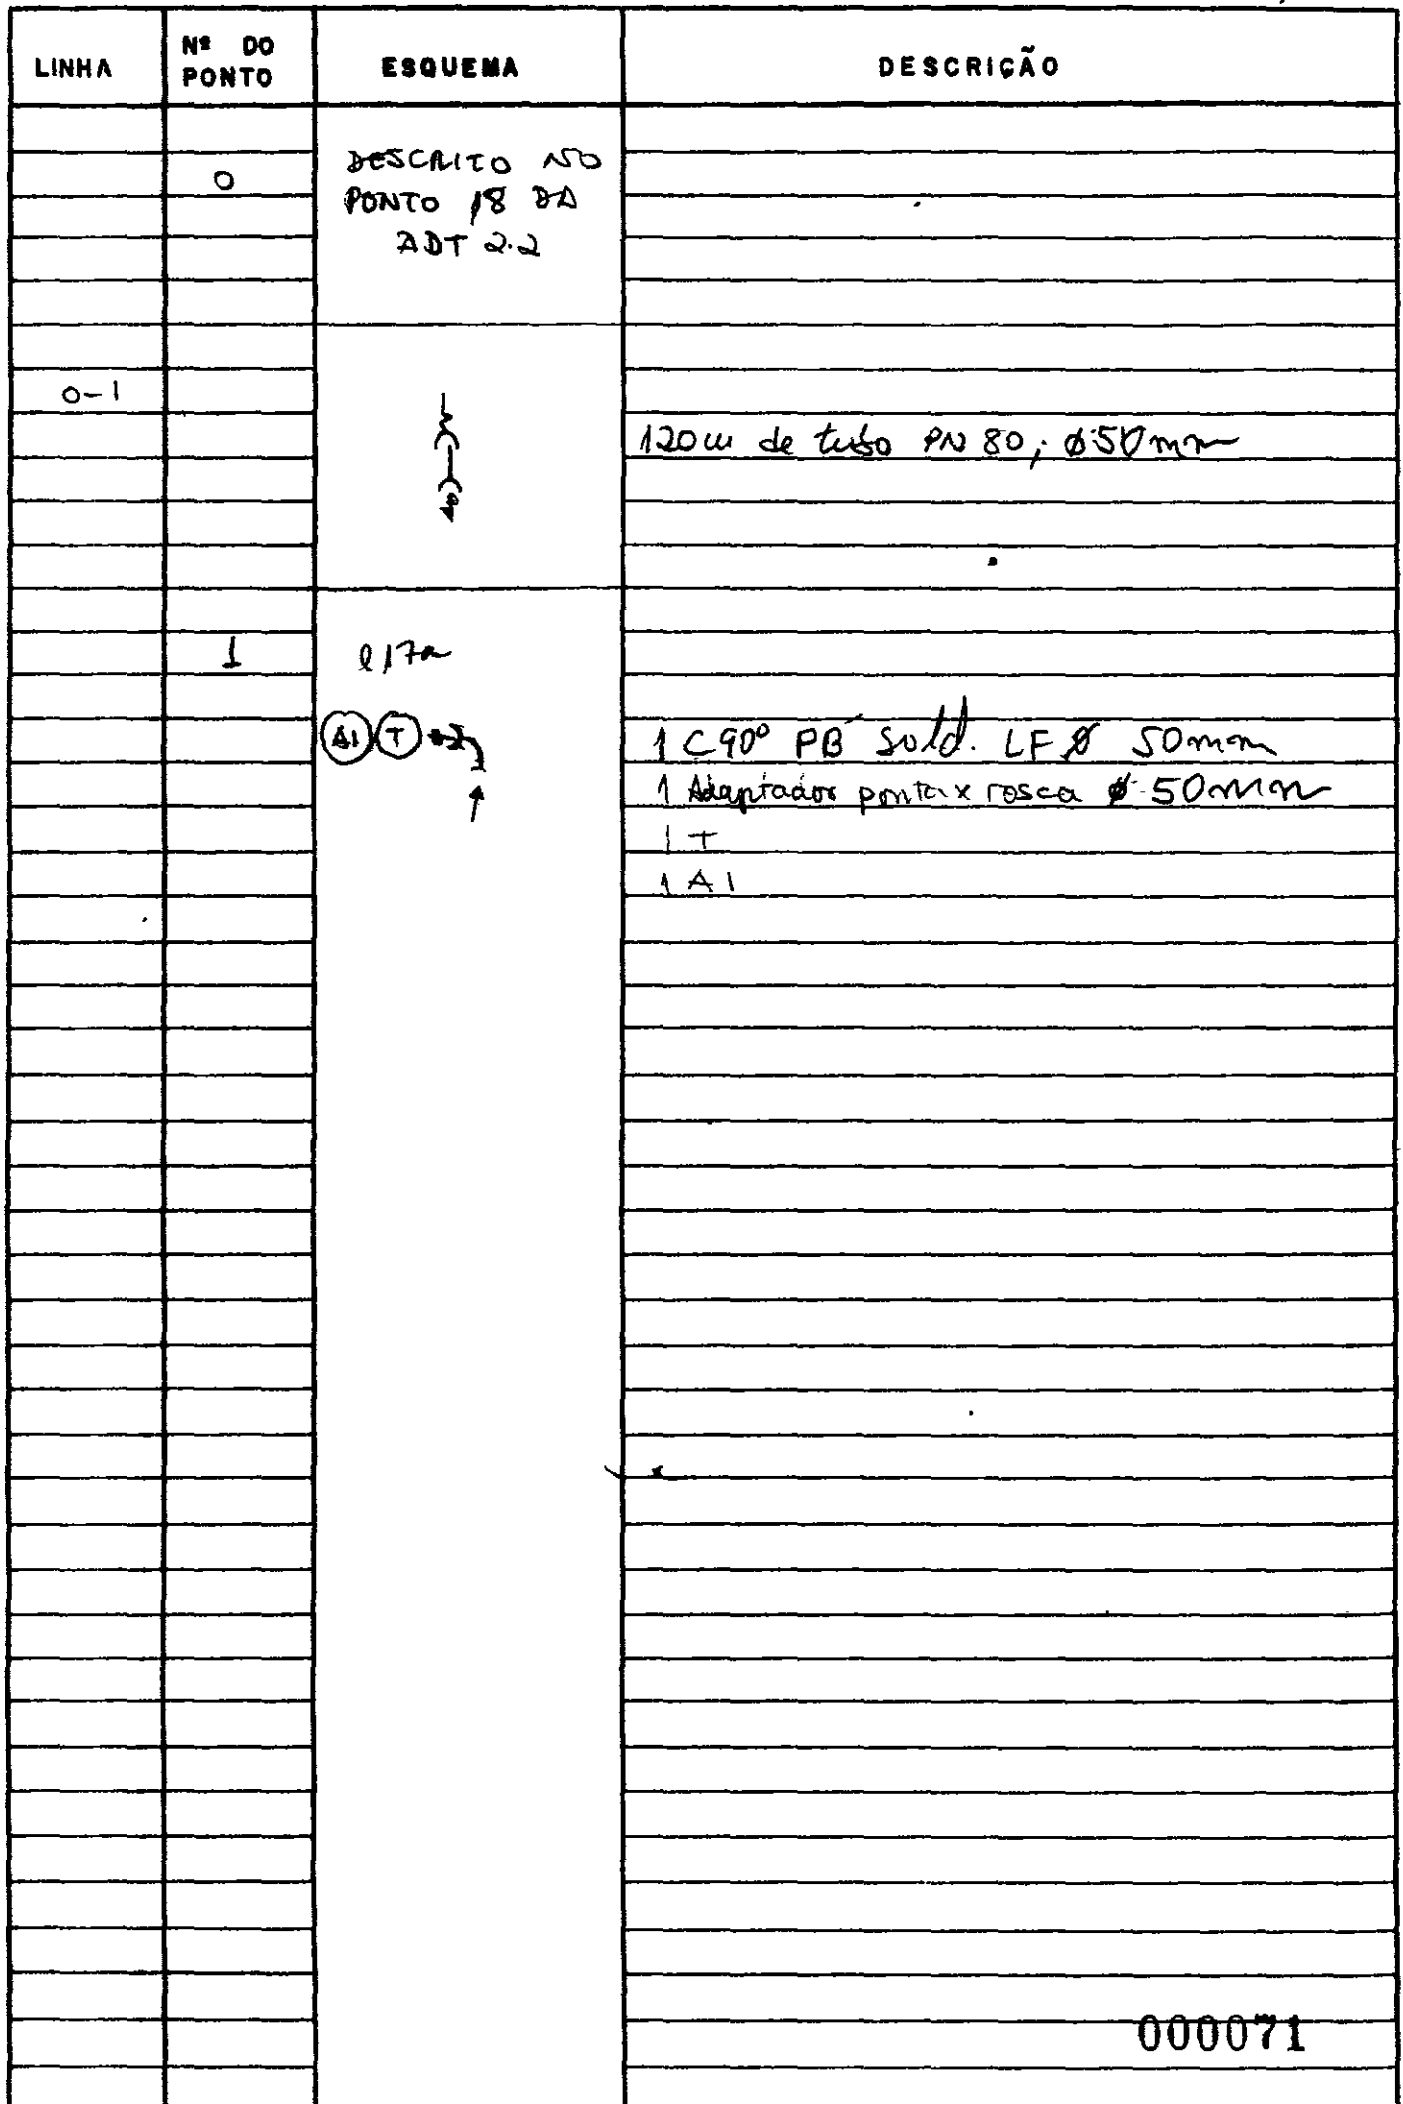 LINHA
Nº DO
PONTO
ESQUEMA
DESCRIÇÃO
0
DESCRITO NO
PONTO 18 DA
ADT 2.2
0-1
120m de tubo PN 80; Ø 50mm
1
A1 T
1 C 90º PB Sold. LF Ø 50mm
1 Adaptador ponta x rosca Ø 50mm
1 T
1 A1
000071